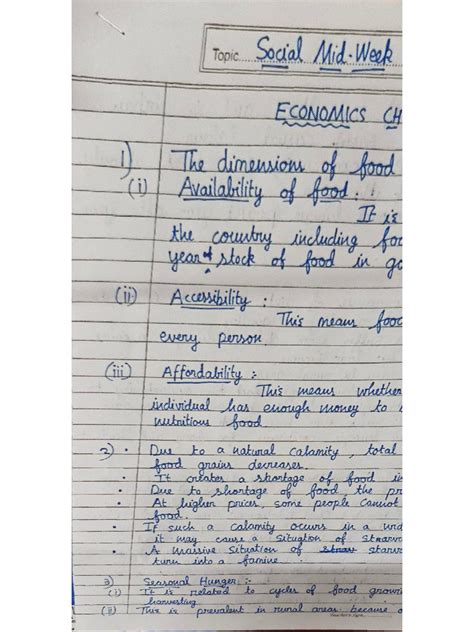 Topic Social Mid-Week
ECONOMICS CH
1) The dimensions of food
(i) Availability of food :
It is
the country including foo
year's stock of food in go
(ii) Accessibility :
This means food
every person.
(iii) Affordability :-
This means whether
individual has enough money to
nutritious food.
2) • Due to a natural calamity, total
food grains decreases.
• It creates a shortage of food in
• Due to shortage of food the pr
• At higher prices, some people cannot
food.
• If such a calamity occurs in a
it may cause a situation of starva
• A massive situation of starv
turn into a famine.
3) Seasonal Hunger :-
(i) It is related to cycles of food growi
harvesting.
(ii) This is prevalent in rural areas because o